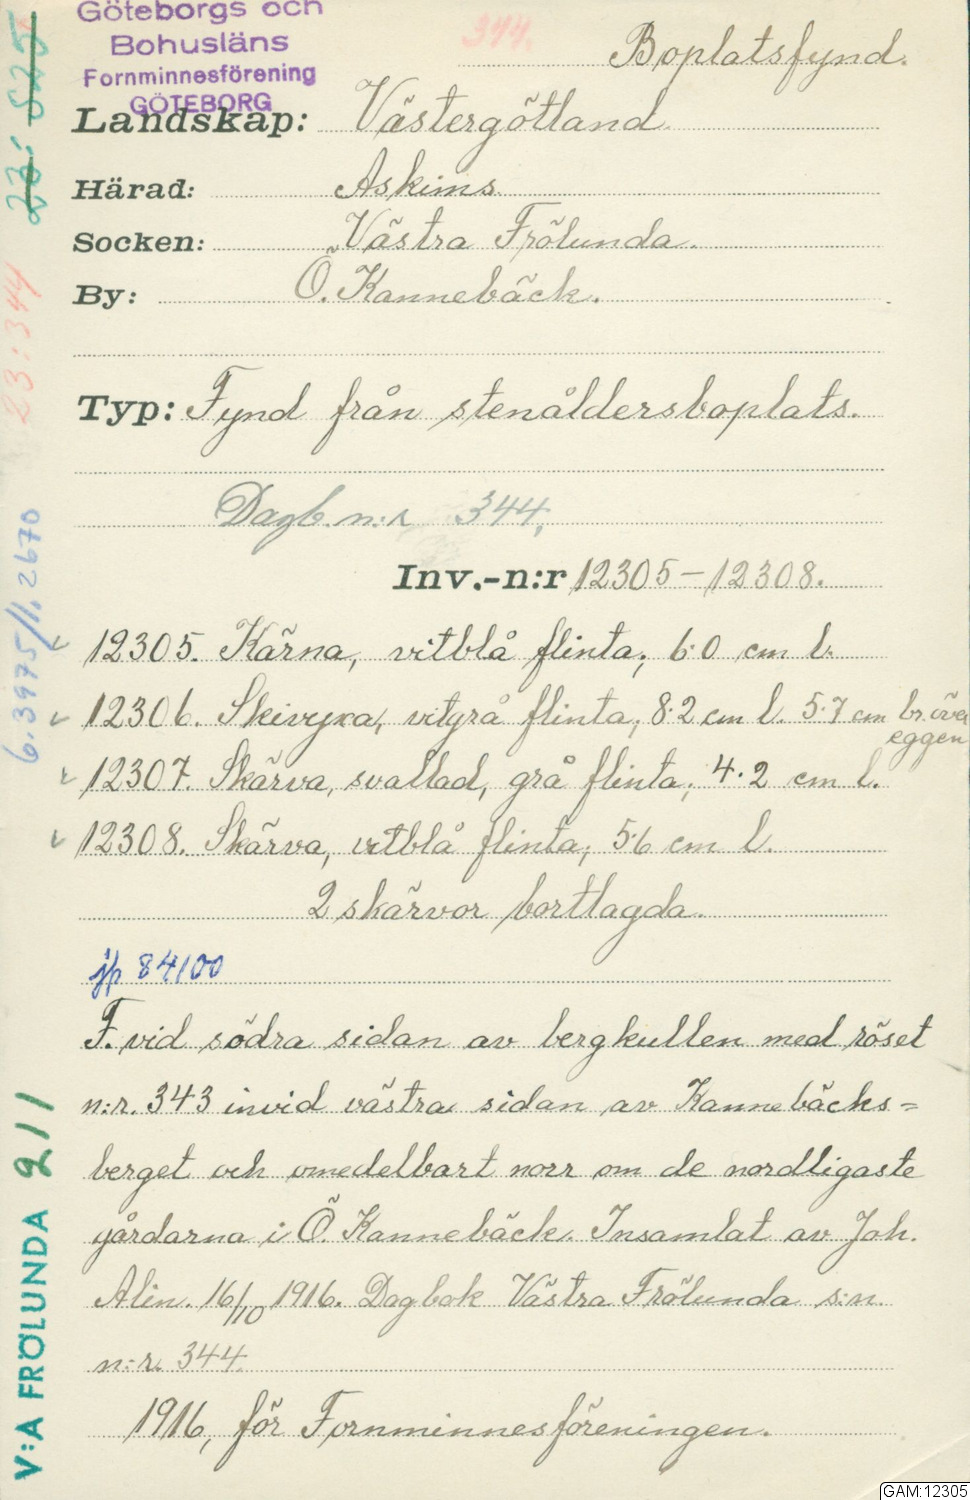 Göteborgs och
Bohusläns
Fornminnesförening
GÖTEBORG
344.
Boplatsfynd.
Landskap: Västergötland.
Härad: Askims.
Socken: Västra Frölunda.
By: Ö. Kannebäck.
Typ: Fynd från stenåldersboplats.
Dagb. n:r 344,
Inv.-n:r 12305-12308.
12305. Kärna, vitblå flinta, 6.0 cm l.
12306. Skivyxa, vitgrå flinta, 8.2 cm l. 5.7 cm br. över
eggen
12307. Skärva, svallad, grå flinta, 4.2 cm l.
12308. Skärva, vitblå flinta, 5.6 cm l.
2 skärvor bortlagda.
jp 84100
F. vid södra sidan av bergkullen med röset
n:r. 343 invid västra sidan av Kannebäcks=
berget och omedelbart norr om de nordligaste
gårdarna i Ö. Kannebäck. Insamlat av Joh.
Alin. 16/10 1916. Dagbok Västra Frölunda s:n.
n:r. 344.
1916, för Fornminnesföreningen.
23:525
23:344
6.3975/1.2670
V:A FRÖLUNDA 211
GAM:12305